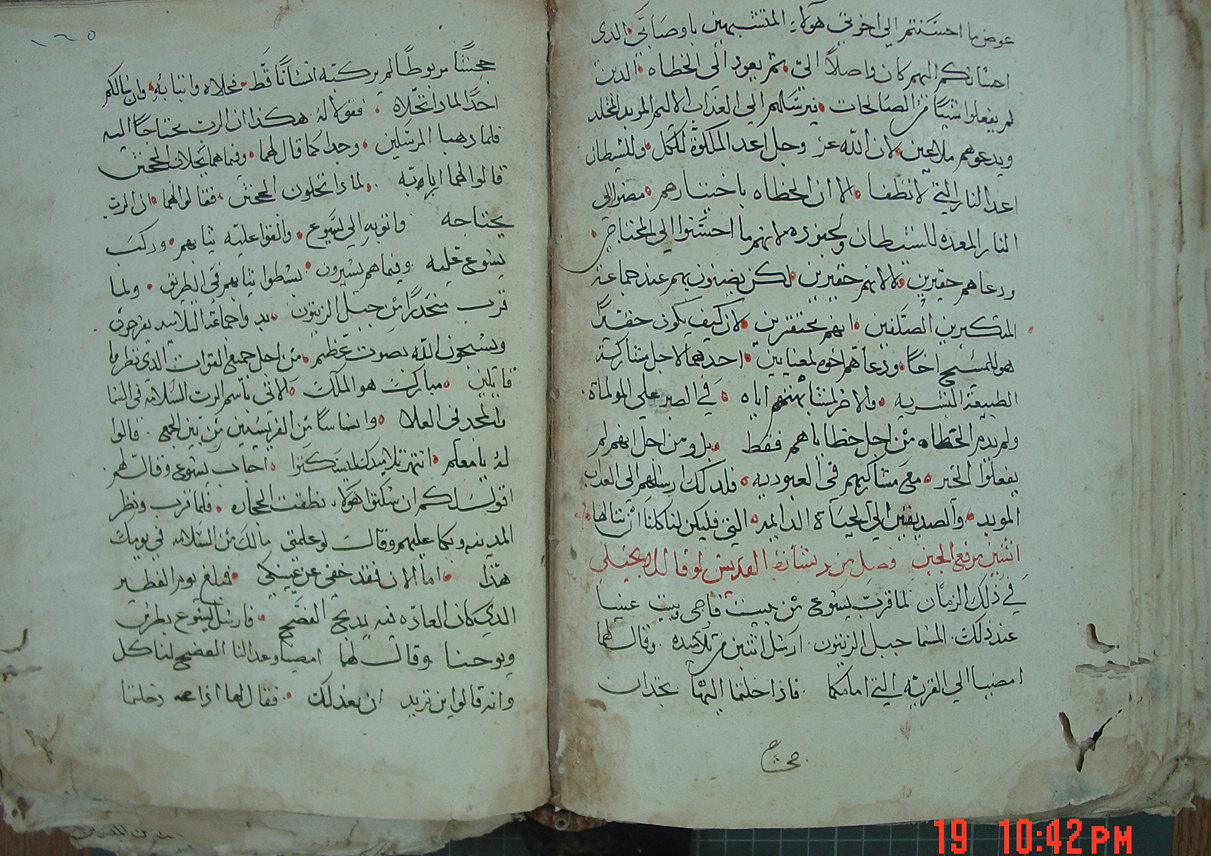 عوض ما احسنتم الي اخوتي هولاء المتشبهين باوصابي الدي
احسانكم اليهم كان واصلاً الي ثم يعود الي الخطاه الدين
لم يفعلوا شيئا من الصالحات فيرسلهم الي العداب الاليم المخلد
ويدعوهم ملاعين لان الله عز وجل اعد الملكوة للكمل وللشيطان
اعد النار التي لا تطفا الا ان الخطاه باختيارهم مضوا الي
النار المعده للشيطان وجنوده لانهم ما احسنوا الي المحتاجين
ودعاهم حقيرين لا لانهم حقيرين لكن يضنون بهم عند جماعة
المتكبرين الصلفين انهم محتقرين لان كيف يكون حقيراً
هو للمسيح اخاً ودعاهم اخوه لمعنايين احدهما لاجل مشاركة
الطبيعة البشريه والاخر لمشابهتهم اياه في الصبر علي
ولم يديم الخطاه من اجل خطاياهم فقط بل ومن اجل انهم لم
يفعلوا الخير مع مشاركيهم في العبوديه فلدلك ارسلهم الي العداب
الموبد والصديقين الي الحياة الدايمه التي فليكن لنا كلنا ان ننالها
اثنين مرفع الجبن فصل من بشارة القديس لوقا الانجيلي
في ذلك الزمان لما قرب يسوع من بيت فاجي وبيت عنيا
عند دلك المسما جبل الزيتون ارسل اثنين من تلاميده وقال لهما
امضيا الي القريه التي امامكما فاذا دخلتما اليها تجدان
جحش
١٦٥
جحشاً مربوطاً لم يركبه انساناً قط فحلاه واتيا به وان سالكم
احداً لماذا تحلاه فقولا له هكذا ان الرب يحتاجاً اليه
فلما دهبا المرسلين وجدا كما قال لهما وفيما هما يحلان الجحش
قالوا لهما اربابه لمادا تحلون الجحش فقالوا لهما ان الرب
يحتاجه واتو به الي يسوع والقوا عليه ثيابهم وركب
يسوع عليه وفيما هم يسيرون بسطوا ثيابهم في الطريق ولما
قرب منحدراً من جبل الزيتون بدوا جماعة التلاميد يفرحون
ويسبحون الله بصوت عظيم من اجل جميع القوات الدي نظروها
قايلين مبارك هو الملك الاتي باسم الرب السلامه في السما
والمجد في العلا واناساً من الفريسيين من بين الجمع قالوا
له يا معلم انتهر تلاميدك ليسكتوا اجاب يسوع وقال لهم
اقول لكم ان سكتوا هولاء نطقت الحجاره فلما قرب ونظر
المدينه وبكا عليهم وقال لو علمتي مالك من السلامه في يومك
هدا اما الان فقد خفي عن عينيكي فبلغ يوم الفطير
الدي كان العاده فيه يدبح الفصح فارسل يسوع بطرس
ويوحنا وقال لهما امضيا وعدا لنا الفصح لناكل
وانهم قالوا اين تريد ان نعد لك فقال لهما ادا دخلتما
19 10:42 PM